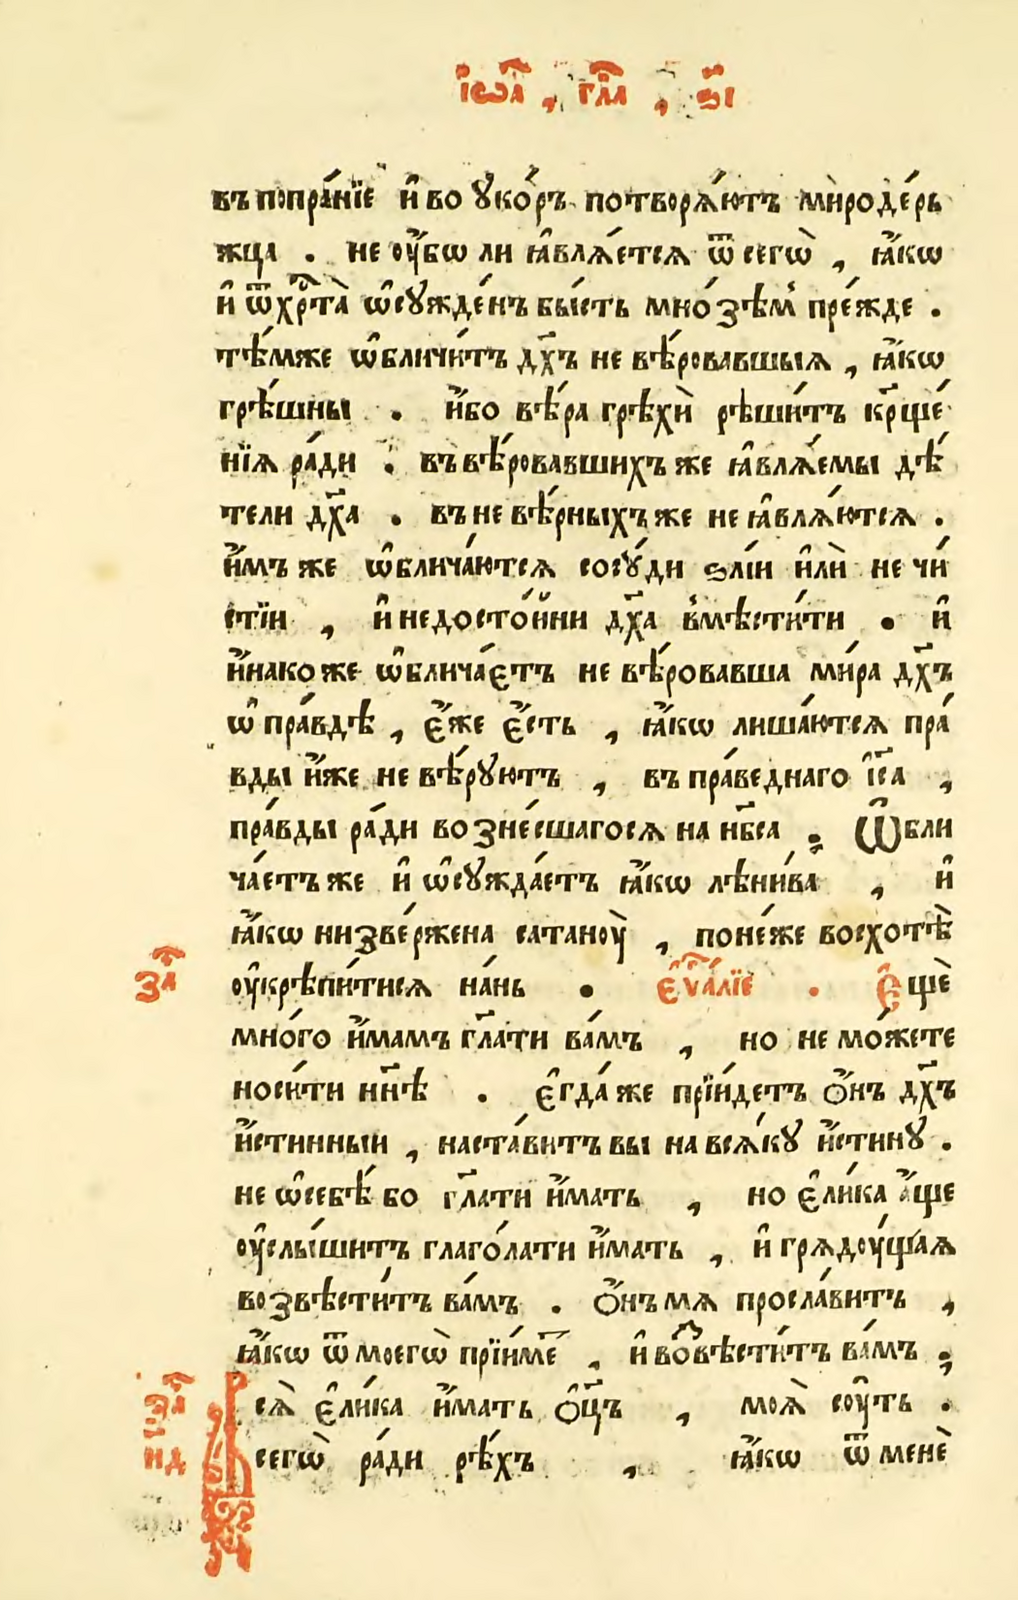 і҆ѡа҃, гл҃а, ѕ҃і
въ попра́нїе и҆ во ꙋко́ръ потворѧ́ютъ миродержь
жца . не оу҆́бѡ ли ꙗ҆влѧ́етсѧ ѿ сегѡ̀, ꙗ҆́кѡ
и҆ ѿ хрⷭ҇та̀ ѡ҆сꙋжде́нъ бы́сть мно́зѣм пре́жде .
тѣ́мже ѡ҆бличи́тъ дх҃ъ не вѣ́ровавшыѧ, ꙗ҆́кѡ
грѣ́шны . и҆́бо вѣ́ра грѣхѝ рѣши́тъ кр҃ще́
нїѧ ра́ди . въ вѣ́ровавшихъ же ꙗ҆влѧ́емы дѣ́
тели дх҃а . въ не вѣ́рныхъ же не ꙗ҆влѧ́ютсѧ .
и҆́мъ же ѡ҆блича́ютсѧ сосꙋ́ди ѕлі́и и҆лѝ не чи́
стїи, и҆ недосто́йни дх҃а вмѣсти́ти . и҆
и҆́нако же ѡ҆блича́етъ не вѣ́ровавша ми́ра дх҃ъ
ѡ҆ пра́вдѣ, є҆́же є҆́сть, ꙗ҆́кѡ лиша́ютсѧ пра́
вды и҆́же не вѣ́рꙋютъ, въ пра́веднаго і҆с҃а,
пра́вды ра́ди вознесшагосѧ на нб҃са . Ѡ҆бли
ча́етъ же и҆ ѡ҆сꙋжда́етъ ꙗ҆́кѡ лѣни́ва, и҆
ꙗ҆́кѡ низве́ржена сатаноу̀, поне́же восхотѣ̀
за҃ оу҆крѣпи́тисѧ на́нь . є҆ѵⷢ҇а́лїе . Є҆щѐ
мно́го и҆́мамъ гл҃ати ва́мъ, но не мо́жете
носи́ти нн҃ѣ . є҆гда́ же прїи́детъ ѻ҆́нъ дх҃ъ
и҆́стинныи, наста́витъ вы на всѧ́кꙋ и҆́стинꙋ .
не ѡ҆ себѣ́ бо гл҃ати и҆́мать, но є҆ли́ка а҆́ще
оу҆слы́шитъ глаго́лати и҆́мать, и҆ грѧдоу́щаѧ
возвѣсти́тъ ва́мъ . ѻ҆́нъ мѧ просла́витъ,
ꙗ҆́кѡ ѿ моегѡ̀ прїи́ме҃, и҆ воⷥвѣсти́тъ ва́мъ .
Всѧ̀ є҆ли́ка и҆́мать ѻ҆ц҃ъ, моѧ̀ соу́ть .
сегѡ̀ ра́ди рѣ́хъ, ꙗ҆́кѡ ѿ менѐ